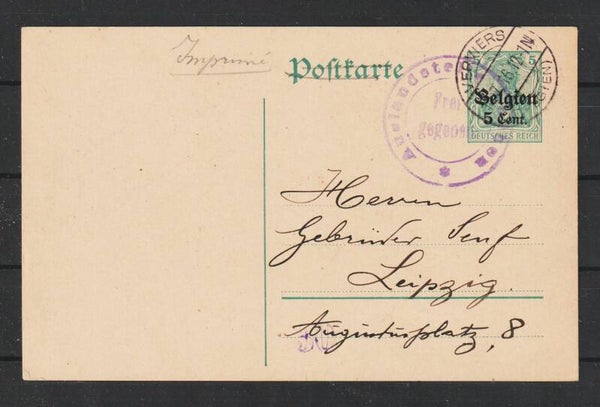 Imprimé
Postkarte
VERVIERS
5
Belgien
5 Cent.
DEUTSCHES REICH
Auslandstelle
Frei
gegeben
Herren
Gebrüder Senf
Leipzig.
Augustusplatz, 8